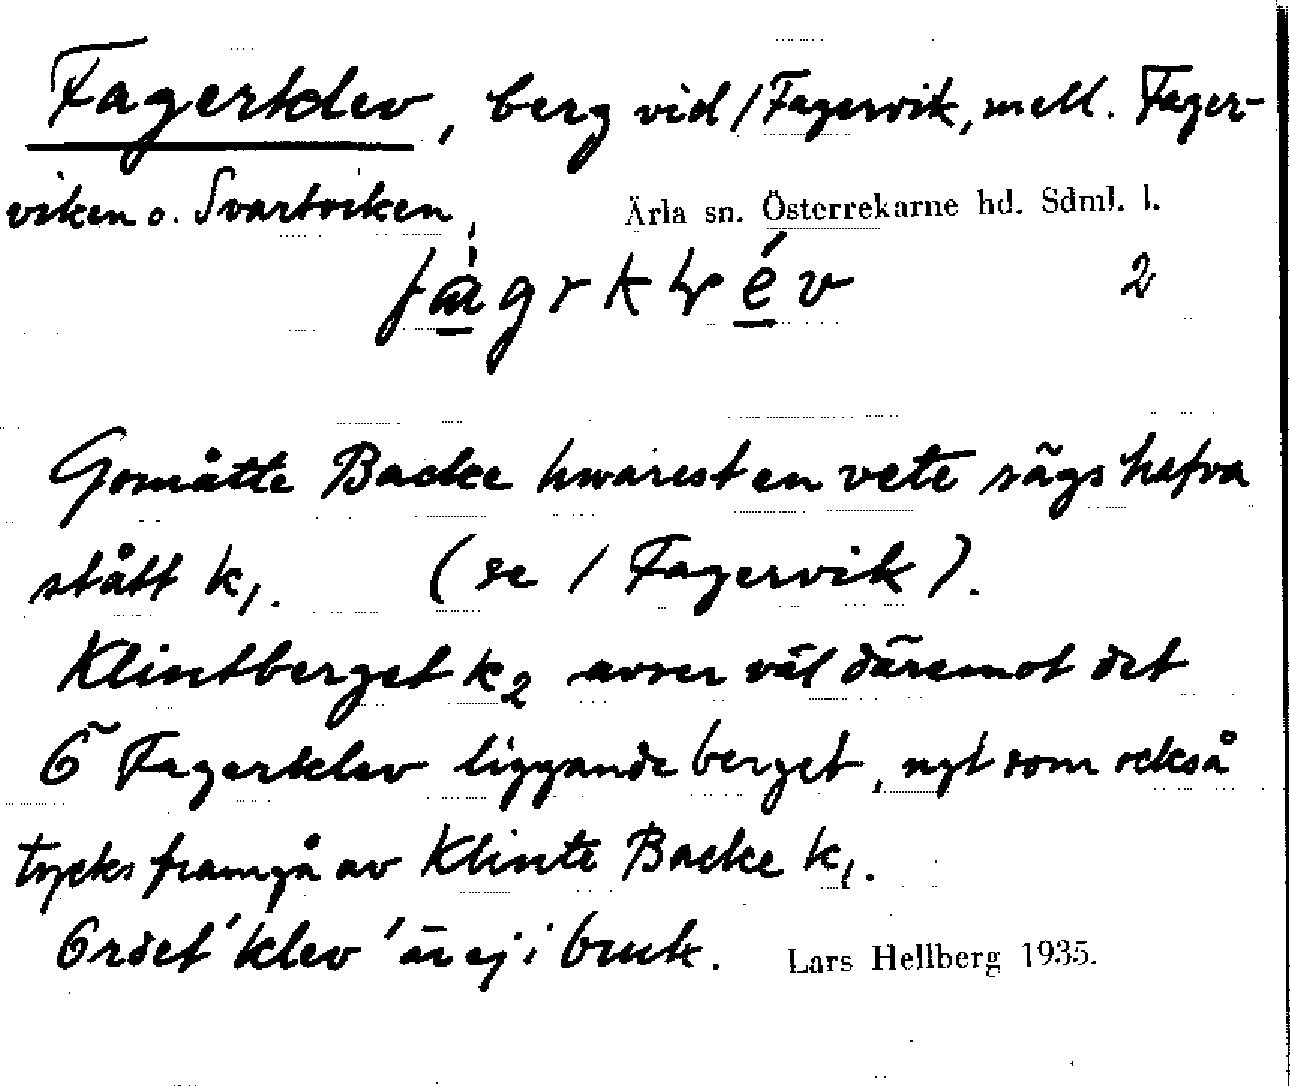 Fagerklev, berg vid / Fagervik, mell. Fager-
viken o. Svartviken,
Ärla sn. Österrekarne hd. Sdml. l.
2
Gomåtte Backe hwarest en vete sägs hafva
stått k1. (se / Fagervik).
Klintberget k2 avser väl däremot det
Ö Fagerklev liggande berget, ngt som också
tycks framgå av Klinte Backe k1.
Ordet 'klev' är ej i bruk.
Lars Hellberg 1935.